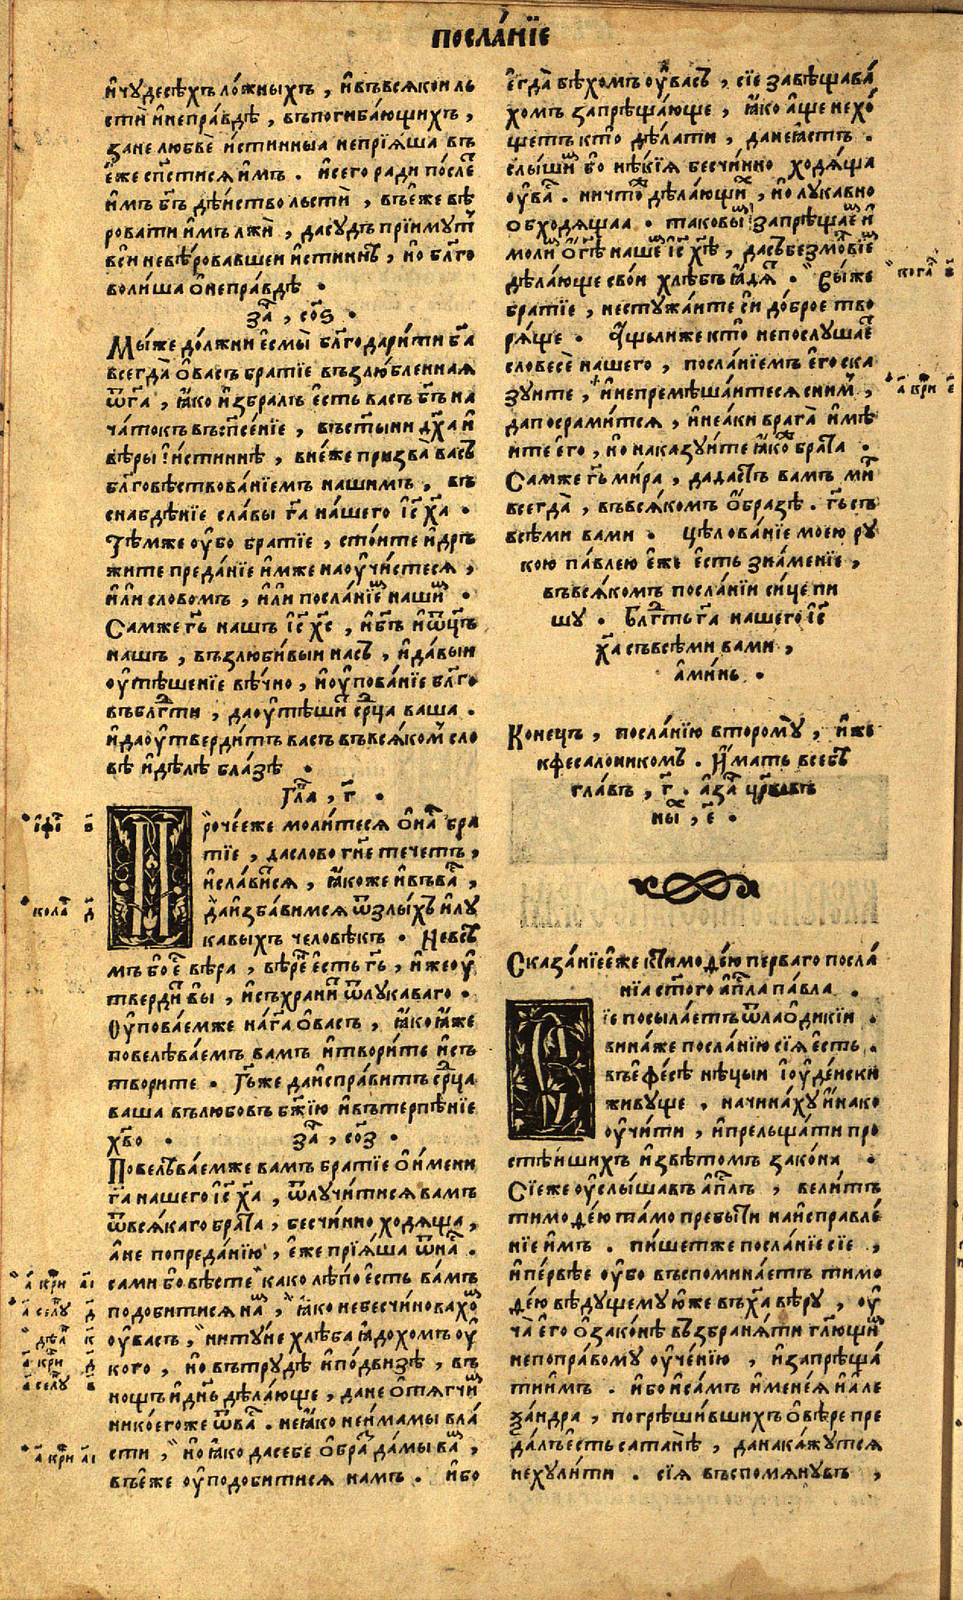 посла́нїе
и҆чудесѣ́хъ ло́жныхъ , и҆въвсякои ль
сти и҆непра́вдѣ , въпогиба́ющихъ ,
зане любве и҆́стинныа непрїя́ша въ
є҆́же сп҃стися и҆мъ . и҆сего ради по́сле
и҆мъ бг҃ъ дѣ́иство льсти , въе҆́же вѣ
ровати и҆мъ лжи , дасу́дъ прїи́мутъ
вси невѣ́ровавшеи и҆́стиннѣ , но бл҃го
воли́ша ѡ҆непра́вдѣ .
за҃ , со҃ѕ .
Мы́же до́лжни є҆смы̀ бл҃годари́ти бг҃а
всегда̀ ѡ҆ва́съ бра́тїе възлю́бленная
ѿг҃а , ꙗ҆ко и҆збра́лъ є҆сть ва́съ бг҃ъ на
ча́токъ въсп҃сенїе , въст҃ы́ни дх҃а и҆
вѣ́ры и҆́стиннѣ , вне́же призва̀ ва́съ
бл҃говѣствова́нїемъ нашимъ , въ
снабдѣ́нїе сла́вы гд҃а на́шего і҆с҃ х҃а .
Тѣ́мже ѹ҆́бо бра́тїе , сто́ите и҆дръ
жите преда́нїе и҆мже наѹ҆чи́стеся ,
и҆лѝ словомъ , и҆лѝ посла́нїемъ нашимъ .
Самже гд҃ь нашъ і҆с҃ хс҃ , и҆бг҃ъ и҆ѿц҃ъ
нашъ , възлюби́выи на́съ , и҆да́выи
ѹ҆тѣ́шенїе вѣ́чно , и҆ѹ҆пова́нїе бл҃го
въблг҃ти , даѹ҆тѣ́шитъ ср҃ца ваша .
и҆даѹ҆тверди́тъ васъ въвся́комъ сло
вѣ и҆дѣ́лѣ бла́зѣ .
Гла҃ , г҃ .
Про́чеє҆же моли́теся ѡ҆на́съ бра
тїе , даслово гн҃е тече́тъ ,
и҆сла́вится , ꙗ҆коже и҆въва́съ ,
даи҆зба́вимся ѿзлы́хъ и҆лу
ка́выхъ человѣ́къ . Невсѣ́
мъ бо є҆сть вѣ́ра , вѣ́ренъ є҆сть гд҃ь , и҆жеѹ҆
тверди́тъ вы̀ , и҆съхрани́тъ ѿлука́ваго .
Ѹ҆пова́емже нагд҃а ѡ҆ва́съ , ꙗ҆ко ꙗ҆́же
повелѣва́емъ ва́мъ и҆твори́те и҆съ
творите . Гд҃ьже даи҆спра́витъ ср҃ца
ваша влюбовъ бж҃їю и҆въ терпѣ́нїе
хв҃о . за҃ , со҃з .
Повелѣва́емже вамъ бра́тїе ѡ҆и҆́мени
гд҃а нашего і҆с҃ х҃а , ѿлучи́тися вамъ
ѿвся́каго бра́та , бесчи́нно ходяща ,
а҆не попреда́нїю , є҆́же прїя́ша ѿна́съ .
сами бо вѣ́сте како лѣ́по є҆сть ва́мъ
подобитися намъ , ꙗ҆ко небесчи́новахомъ
ѹ҆васъ , нитуне хлѣ́ба ꙗ҆дохомъ ѹ҆
кого , но вътрудѣ̀ и҆по́двизѣ , въ
нощъ и҆днь дѣ́лающе , дане ѡ҆тягчи́мъ
нико́егоже ѿва́съ . неꙗ҆́ко неи҆́мамы вла́
сти , но ꙗ҆́ко дасебе ѡ҆́бразъ да́мы ва́мъ ,
въе҆́же ѹ҆подо́битися намъ . и҆́бо
є҆гда̀ бѣ́хомъ ѹ҆ва́съ , сїе завѣщава́
хомъ запрѣща́юще , ꙗ҆ко а҆́ще нехо́
щетъ кто̀ дѣ́лати , данеꙗ҆́стъ .
слы́шимъ бо нѣ́кїя бесчи́нно ходя́ща
ѹ҆ва́съ . ничто́же дѣ́лающихъ , но лука́вно
обходящаа . таковымъ запрѣща́емъ и҆
молимъ ѡ҆гд҃ѣ нашемъ і҆с҃ хс҃ѣ , дасъбезмо́лвїемъ
дѣ́лающе сво́и хлѣ́бъ ꙗ҆дя́тъ . Вы́же
братїе , несту́жаите си до́брое тво
ря́ще . А҆щели́же кто̀ непослу́шаетъ
словесѐ нашего , посла́нїемъ є҆го ска
зуите , и҆непремѣша́итеся сни́мъ ,
дапосрами́тся , и҆неа́ки врага̀ и҆мѣ́
ите є҆го , но наказу́ите ꙗ҆́коже бра́та .
Самже гд҃ь ми́ра , дада́стъ вамъ ми́ръ
всегда̀ , въвся́комъ ѡ҆́бразѣ . гд҃ь съ
всѣ́ми вами . Цѣ́лова́нїе моею ру
кою па́влею є҆́же є҆́сть зна́менїе ,
въвся́комъ посла́нїи си́це пи
шу . Блг҃ть гд҃а нашего і҆с҃
х҃а съвсѣ́ми вами ,
а҆ми́нь .
Коне́цъ , посла́нїю второ́му , и҆́же
кфесалоникомъ . И҆́мать всебѣ̀
гла́въ , г҃ . а҆за҃ црк҃овъ
ны , є҃ .
Сказа́нїеє҆́же ктимоѳе́ю перваго посла́
нїа ст҃ого а҆п҃ла па́вла .
Сїе посыла́етъ ѿлаѡ҆дики́и .
вина́же посла́нїю сїя є҆́сть .
въе҆фе́сѣ нѣ́цыи і҆ѹ҆де́иски
живуще , начина́ху и҆́нако
ѹ҆чи́ти , и҆прельща́ти про
стѣ́ишихъ и҆звѣ́томъ зако́на .
Сїе́же ѹ҆слы́шавъ а҆п҃лъ , вели́тъ
тимоѳе́ю та́мо пребы́ти наи҆справле́
нїе и҆мъ . пи́шетже посла́нїе сїе ,
и҆пе́рвѣе ѹ҆́бо въспомина́етъ тимо
ѳе́ю вѣ́дущему ю҆́же въх҃а вѣ́ру , ѹ҆
ча̀ є҆го ѡ҆зако́нѣ възбраня́ти гл҃ющимъ
непопра́вому ѹ҆че́нїю , и҆запрѣща́
тиимъ . и҆бо и҆са́мъ и҆мене́я и҆а҆ле
ѯа́ндра , погрѣши́вшихъ ѡ҆вѣ́ре пре
да́лъ є҆сть сатанѣ̀ , данака́жутся
неху́лити . сїя въспомяну́въ ,
когда҃ в҃
а҃ кри є҃
і҆ фїⷭ҇ ѕ҃
кола҃ д҃
а҃ кри а҃і
а҃ селу д҃
дѣа҃ к҃
а҃ кри д҃
а҃ селу в҃
а҃ кри а҃і